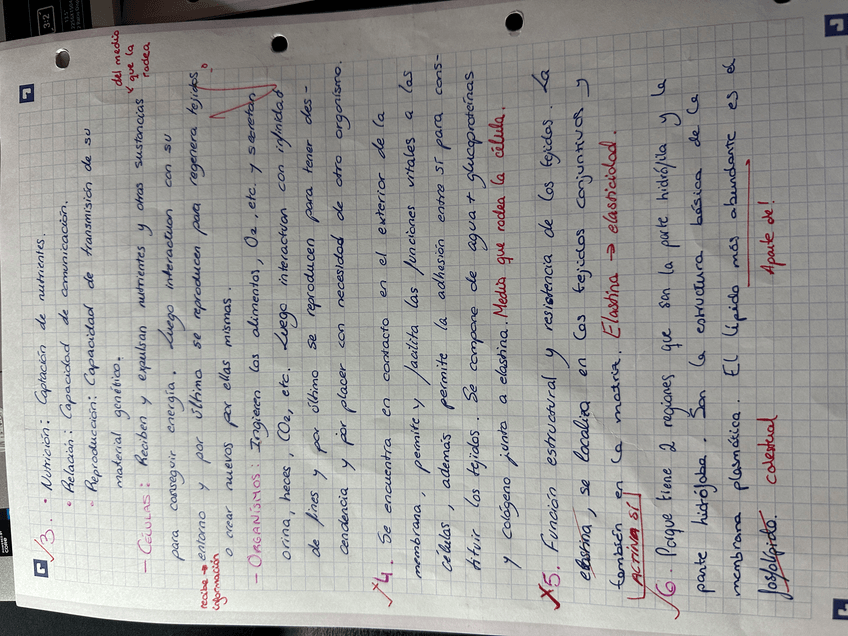 3. • Nutrición: Captación de nutrientes.
• Relación: Capacidad de comunicación.
• Reproducción: Capacidad de transmisión de su
material genético.
del medio
que la
rodea
- CÉLULAS: Reciben y expulsan nutrientes y otras sustancias
para conseguir energía. Luego interactuan con su
entorno y por último se reproducen para regenera tejidos
o crear nuevos por ellas mismas.
recibe →
información
- ORGANISMOS: Ingieren los alimentos, O2, etc. y secretan
orina, heces, CO2, etc. Luego interactuan con infinidad
de fines y por último se reproducen para tener des-
cendencia y por placer con necesidad de otro organismo.
4. Se encuentra en contacto en el exterior de la
membrana, permite y facilita las funciones vitales a las
células, además permite la adhesión entre sí para cons-
tituir los tejidos. Se compone de agua + glucoproteínas
y colágeno junto a elastina. Medio que rodea la célula.
5. Función estructural y resistencia de los tejidos. La
elastina, se localiza en los tejidos conjuntivos y
también en la matriz. Elastina → elasticidad.
ACTIVA SÍ
6. Porque tiene 2 regiones que son la parte hidrófila y la
parte hidrófoba. Son la estructura básica de la
membrana plasmática. El lípido más abundante es el
fosfolípido. colesterol
Aparte de!